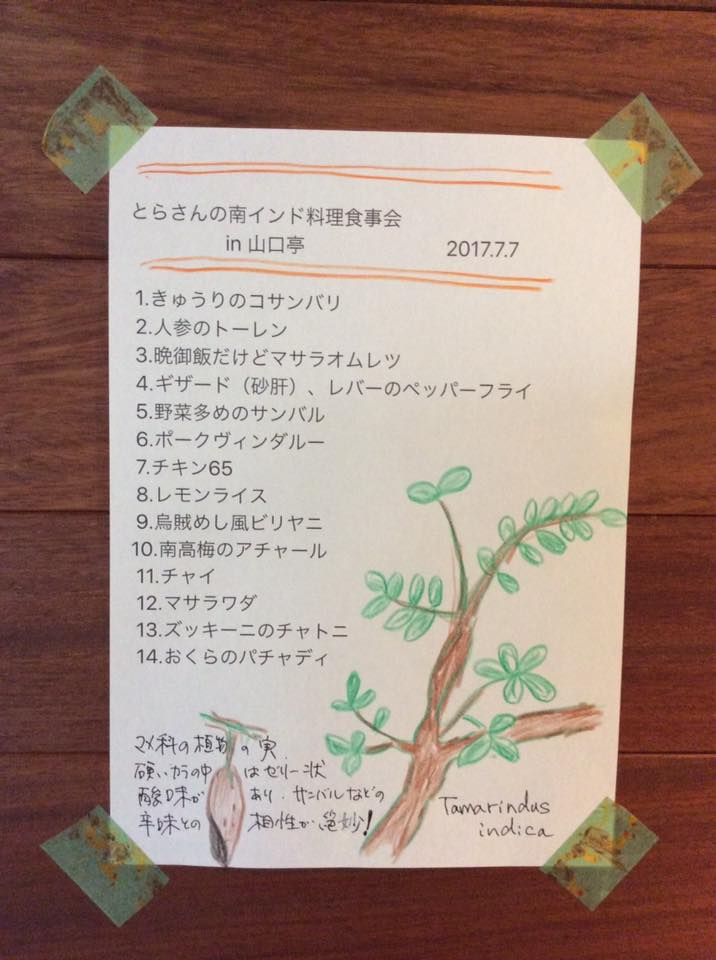 とらさんの南インド料理食事会
in 山口亭 2017.7.7
1.きゅうりのコサンバリ
2.人参のトーレン
3.晩御飯だけどマサラオムレツ
4.ギザード（砂肝）、レバーのペッパーフライ
5.野菜多めのサンバル
6.ポークヴィンダルー
7.チキン65
8.レモンライス
9.烏賊めし風ビリヤニ
10.南高梅のアチャール
11.チャイ
12.マサラワダ
13.ズッキーニのチャトニ
14.おくらのパチャディ
マメ科の植物の実.
硬いカラの中はゼリー状
酸味があり.サンバルなどの
辛味との相性が絶妙!
Tamarindus
indica